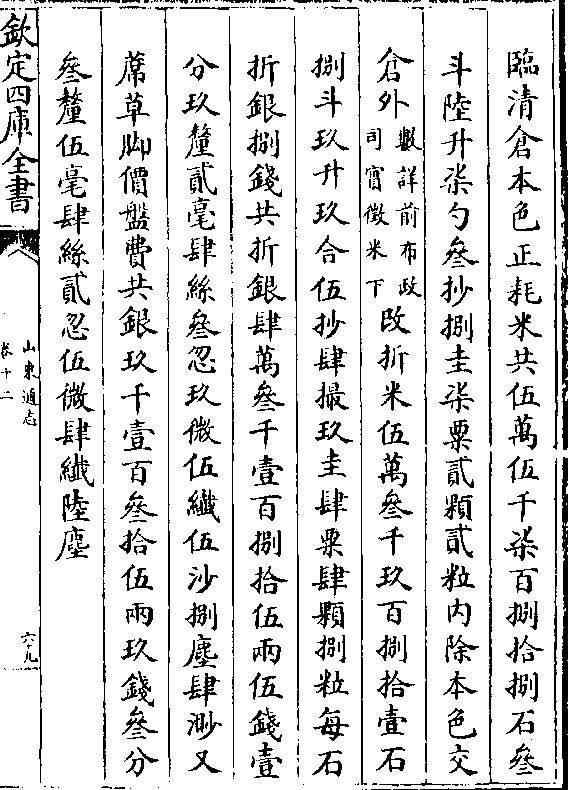 臨清倉本色正耗米共伍萬伍千柒百捌拾捌石叄
斗陸升柒勺叄抄捌圭柒粟貳顆貳粒内除本色交
倉外數詳前布政司實徵米下改折米伍萬叄千玖百捌拾壹石
捌斗玖升玖合伍抄肆撮玖圭肆粟肆顆捌粒每石
折銀捌錢共折銀肆萬叄千壹百捌拾伍兩伍錢壹
分玖釐貳毫肆絲叄忽玖微伍纖伍沙捌塵肆渺又
蓆草脚價盤費共銀玖千壹百叄拾伍兩玖錢叄分
叄釐伍毫肆絲貳忽伍微肆纖陸塵
欽定四庫全書
山東通志
卷十二
六十九